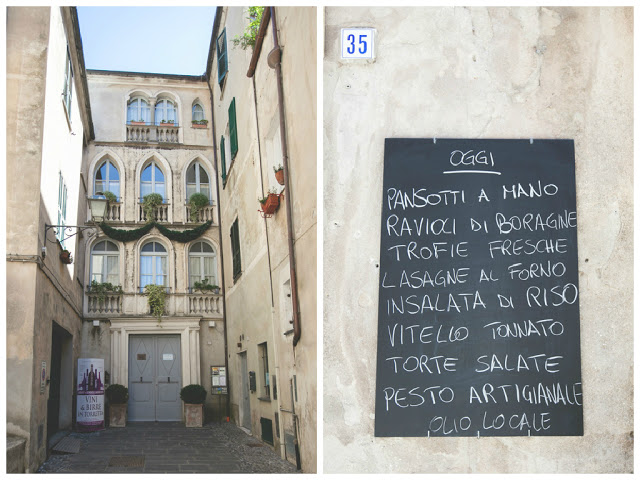 VINI
& BIRRE
IN TORRETTA
35
OGGI
PANSOTTI A MANO
RAVIOLI DI BORAGINE
TROFIE FRESCHE
LASAGNE AL FORNO
INSALATA DI RISO
VITELLO TONNATO
TORTE SALATE
PESTO ARTIGIANALE
OLIO LOCALE